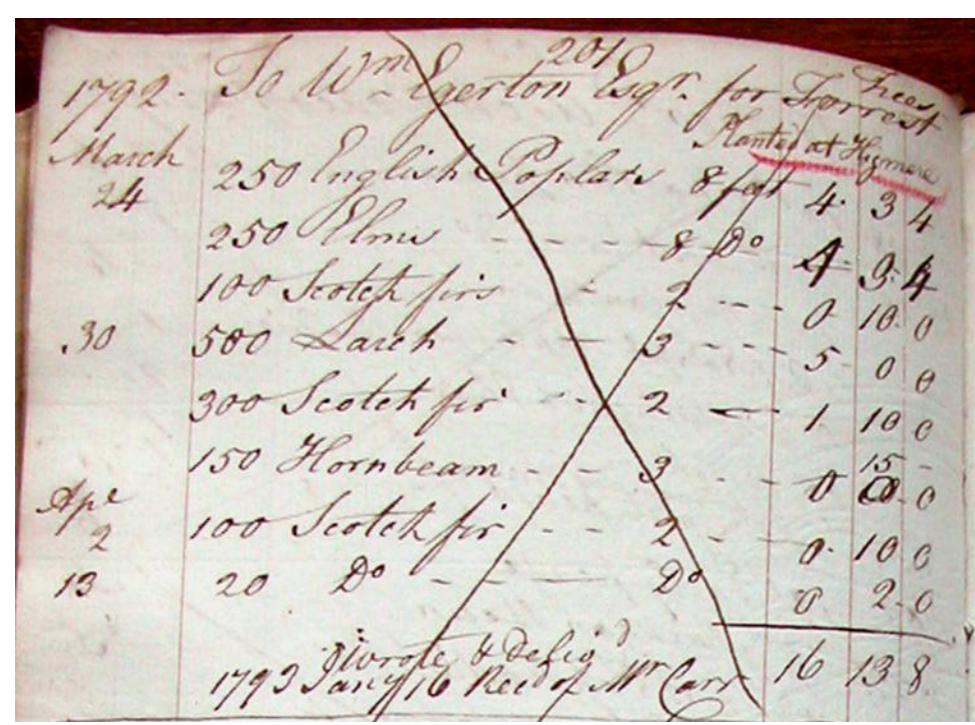 201
1792. To Wm Egerton Esqr. for Forrest Trees
Planted at Higmere
March 24 250 English Poplars 8 feet 4. 3 4
250 Elms - - - - 8 Do 4 3 4
100 Scotch firs - 2 - - - 0 10. 0
30 500 Larch - - - 3 - - - 5 0 0
300 Scotch fir - - 2 — 1. 10 0
150 Hornbeam - - 3 - - 0 15 0
Apl 2 100 Scotch fir - - 2 - - 0. 10 0
13 20 Do - - - Do 0 2. 0
Wrote &
1793 Jany 16 Recd of Mr Carr 16 13 8